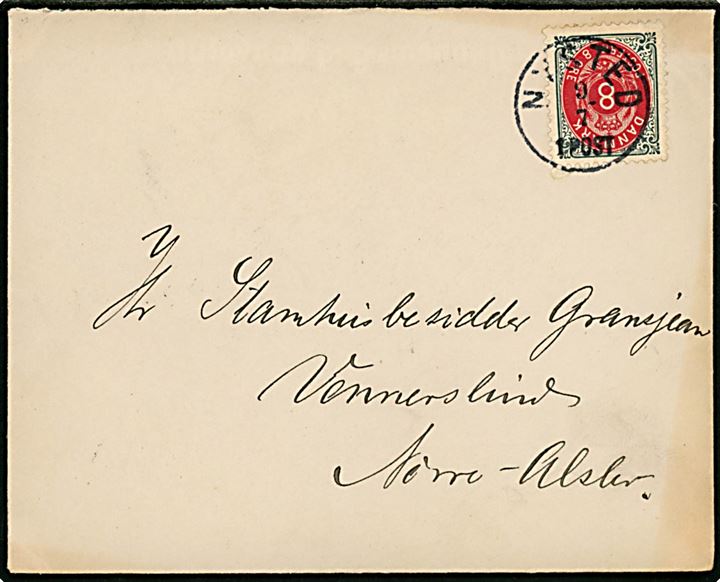 NYSTED
9-
7
1 POST
8 ØRE
8
DANMARK
Hr Stamhusbesidder Gransjean
Vennerslund
Nörre-Alslev.